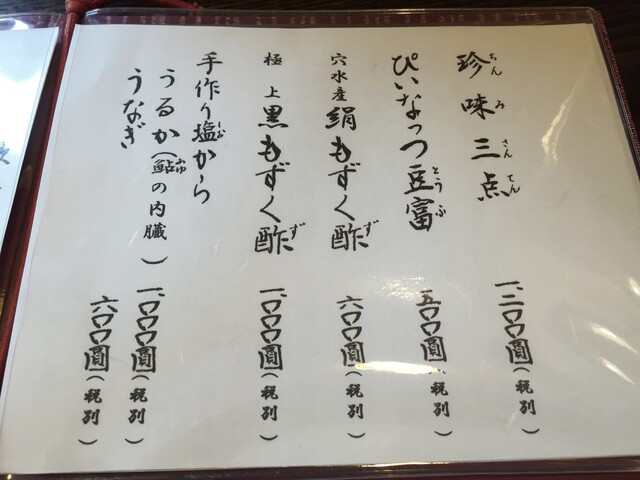 珍味三点 一、二〇〇圓(税別)
ちんみさんてん
ぴいなっつ豆富 五〇〇圓(税別)
とうふ
穴水産 絹もずく酢 六〇〇圓(税別)
ず
極上 黒もずく酢 一、〇〇〇圓(税別)
ず
手作り塩から
しお
うるか(鮎の内臓) 一、〇〇〇圓(税別)
あゆ
うなぎ 六〇〇圓(税別)